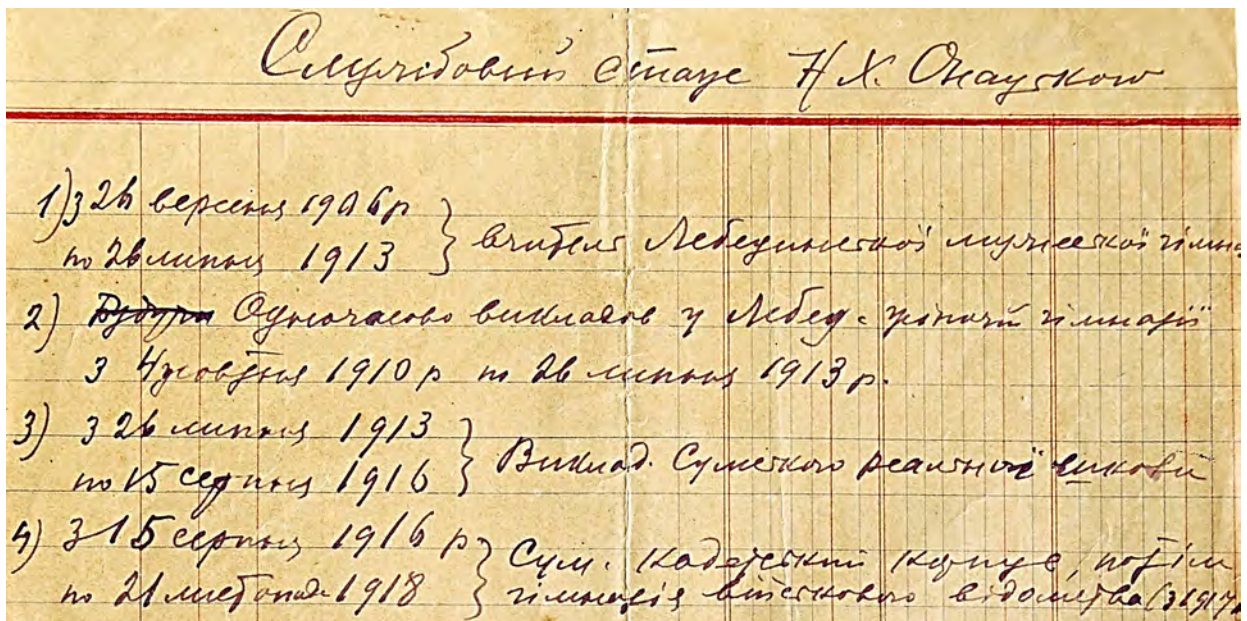 Службовий стаж Н Х. Онацького
1) з 26 вересня 1906 р
по 26 липня 1913 } вчитель Лебединської мужеської гімна
2) Одночасно викладов у Лебед. жіночій гімназії
з 4 жовтня 1910 р по 26 липня 1913 р.
3) з 26 липня 1913
по 15 серпня 1916 } Виклад. Сумського реальної школи
4) з 15 серпня 1916 р
по 21 листопад. 1918 } Сум. кадетский корпус, потім
гімназія війскового відомства (з 1917